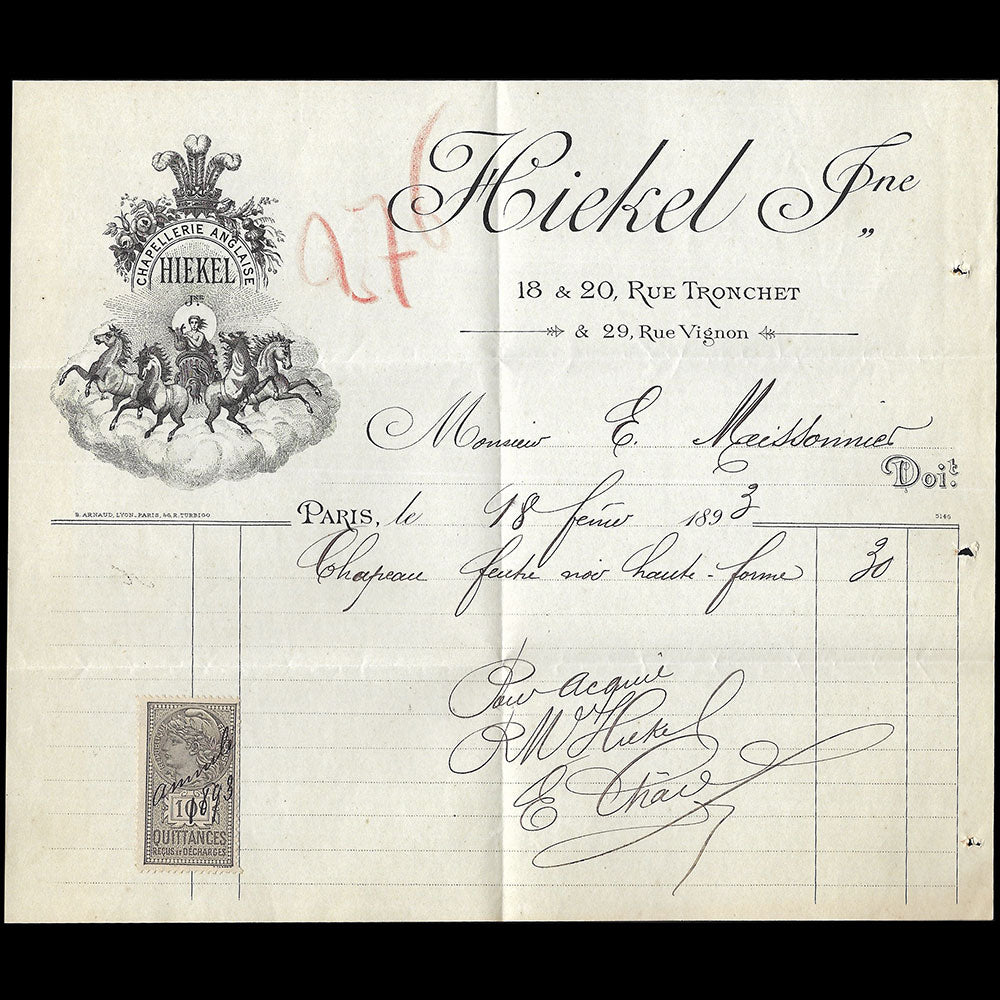 CHAPELLERIE ANGLAISE
HIEKEL
Jne.
976
Hiekel Jne
18 & 20, RUE TRONCHET
& 29, Rue Vignon
Monsieur E. Meissonnier
Doit
S. ARNAUD, LYON_PARIS, 46, R. TURBIGO
PARIS, le 18 février 1893
5146
Chapeau feutre noir haute-forme 30
Pour acquit
Hiekel
E
1893
10c
QUITTANCES
REÇUS ET DÉCHARGES